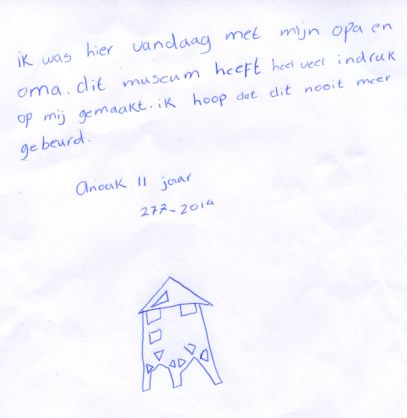 ik was hier vandaag met mijn opa en
oma. dit museum heeft heel veel indruk
op mij gemaakt. ik hoop dat dit nooit meer
gebeurd.
anouk 11 jaar
277-2019